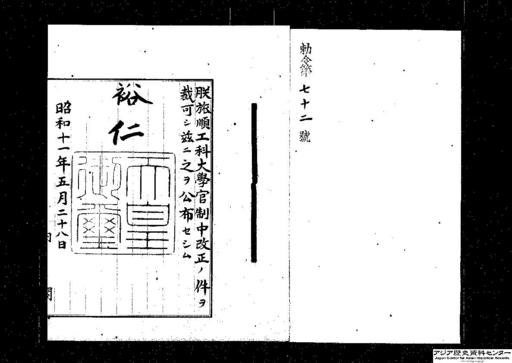 勅令第七十二號
朕旅順工科大學官制中改正ノ件ヲ
裁可シ茲ニ之ヲ公布セシム
裕仁
天皇御璽
昭和十一年五月二十八日
アジア歴史資料センター
Japan Center for Asian Historical Records